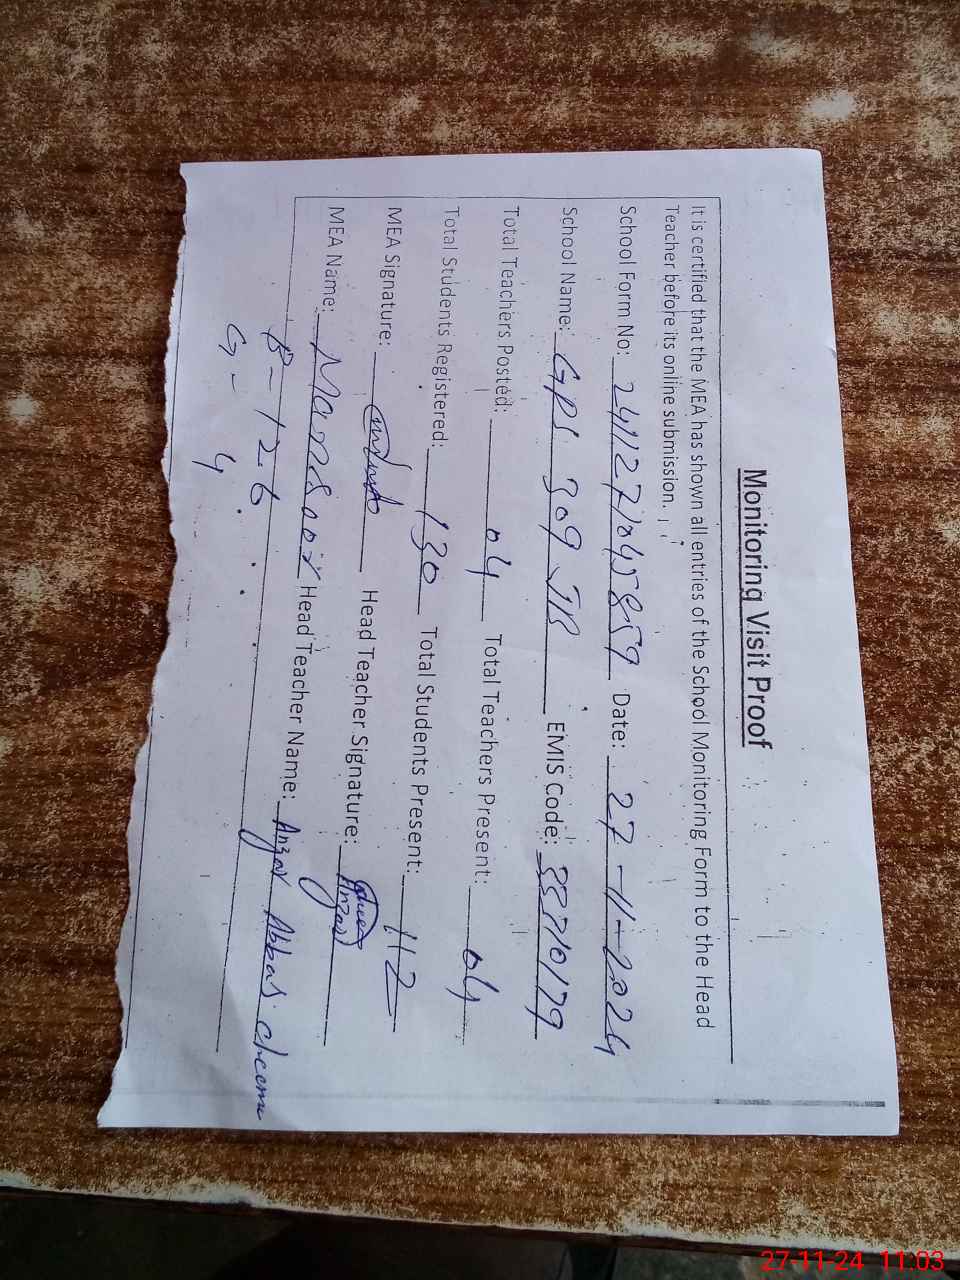 Monitoring Visit Proof
It is certified that the MEA has shown all entries of the School Monitoring Form to the Head
Teacher before its online submission.
School Form No: 241127104585 9 Date: 27-11-2024
School Name: GPS 309 JB EMIS Code: 33310179
Total Teachers Posted: 04 Total Teachers Present: 04
Total Students Registered: 130 Total Students Present: 112
MEA Signature: Head Teacher Signature:
MEA Name: Manzoor Head Teacher Name: Anzar Abbas cheema
B - 126
G - 4
27-11-24 11:03